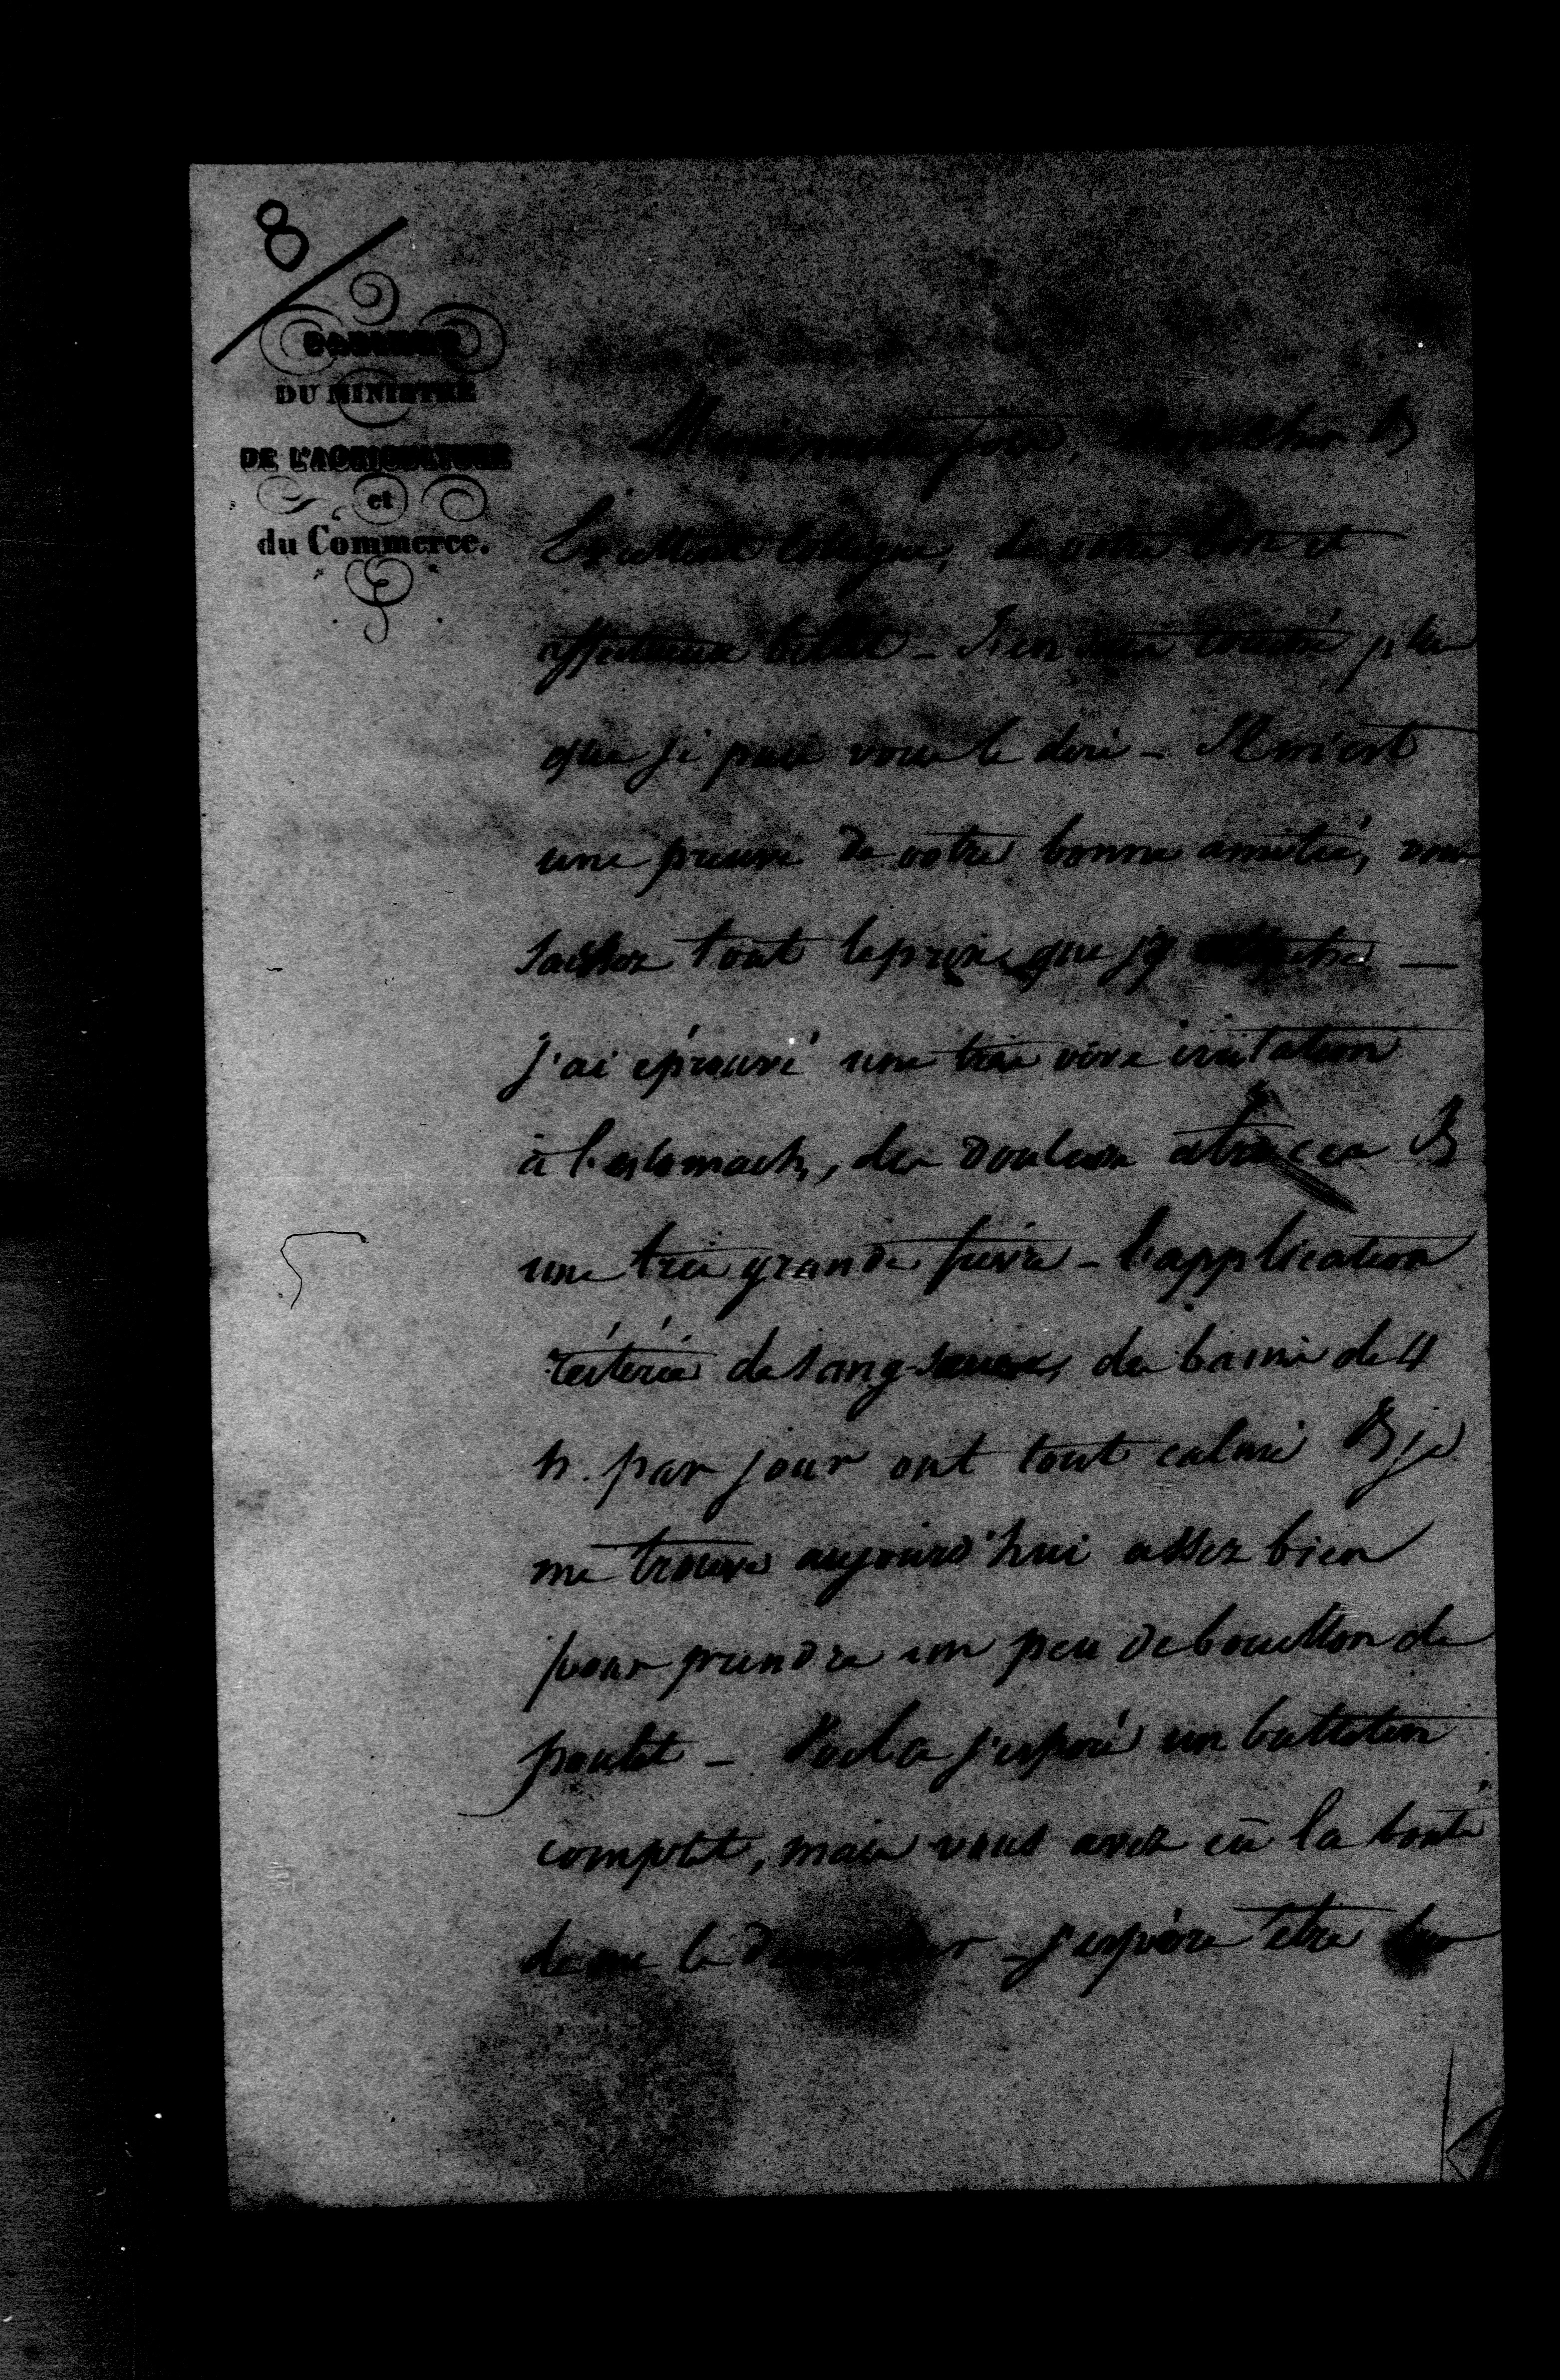 8
CABINET
DU MINISTRE
DE L'AGRICULTURE
et
du Commerce.
Merci mille fois, mon cher &
Excellent Collègue, de votre bon et
affectueux billet _ J'en suis touché plus
que je puis vous le dire _ Il m'est
une preuve de votre bonne amitié, vous
sachez tout le prix que j'y
J'ai éprouvé une très vive irritation
à l'estomach, des douleurs atroces &
une très grande fièvre _ l'application
réitérée de sang-sues, des bains de 4
h. par jour ont tout calmé & je
me trouve aujourd'hui assez bien
pour prendre un peu de bouillon de
poulet _ Voila j'espère un bulletin
complet, mais vous avez eû la bonté
de me le demander _ J'espère être